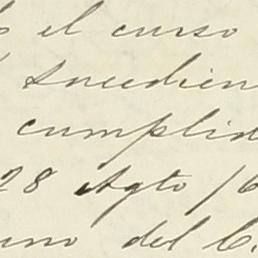 el curso
sucedien
cumplid
28 Agto /6
uno del C.